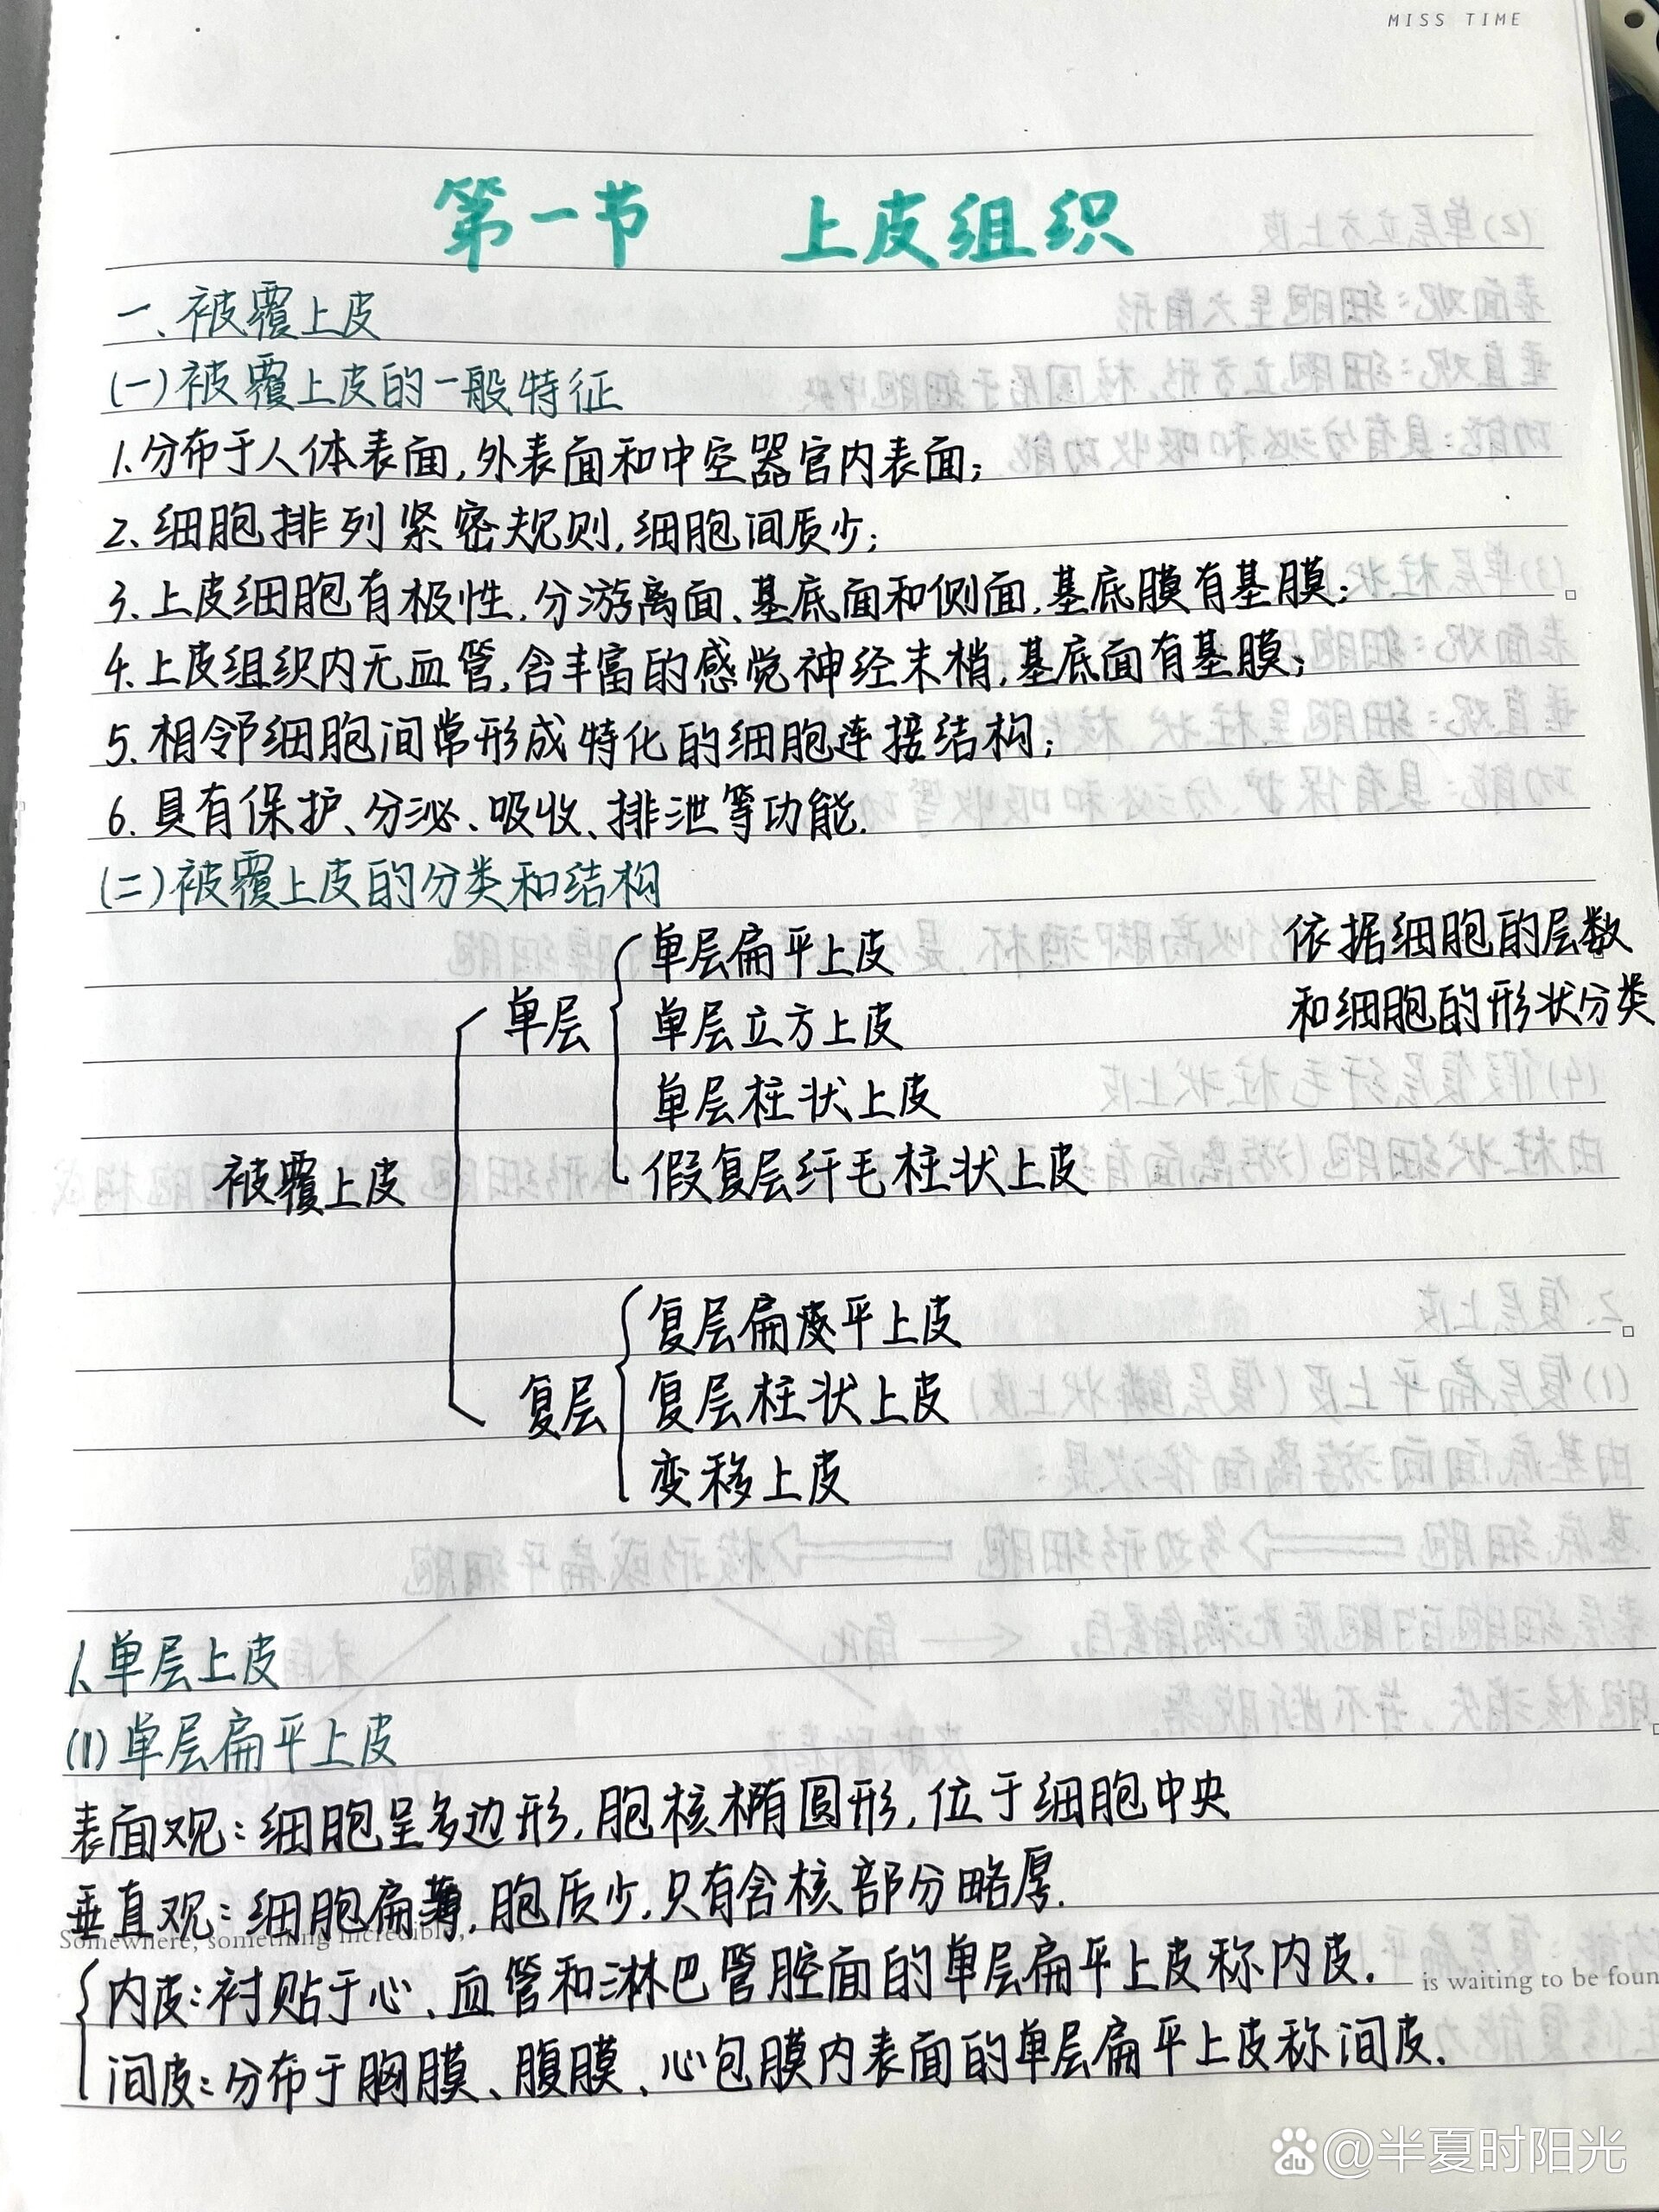 MISS TIME
第一节 上皮组织
一、被覆上皮
(一)被覆上皮的一般特征
1.分布于人体表面,外表面和中空器官内表面;
2、细胞排列紧密规则,细胞间质少;
3.上皮细胞有极性,分游离面、基底面和侧面,基底膜有基膜;
4.上皮组织内无血管,含丰富的感觉神经末梢,基底面有基膜;
5.相邻细胞间常形成特化的细胞连接结构;
6.具有保护、分泌、吸收、排泄等功能.
(二)被覆上皮的分类和结构
依据细胞的层数
和细胞的形状分类
被覆上皮
单层
单层扁平上皮
单层立方上皮
单层柱状上皮
假复层纤毛柱状上皮
复层
复层扁平上皮
复层柱状上皮
变移上皮
1、单层上皮
(1)单层扁平上皮
表面观:细胞呈多边形,胞核椭圆形,位于细胞中央
垂直观:细胞扁薄,胞质少,只有含核部分略厚.
Somewhere, something incredible,
内皮:衬贴于心、血管和淋巴管腔面的单层扁平上皮称内皮.
is waiting to be foun
间皮:分布于胸膜、腹膜、心包膜内表面的单层扁平上皮称间皮.
du @半夏时阳光